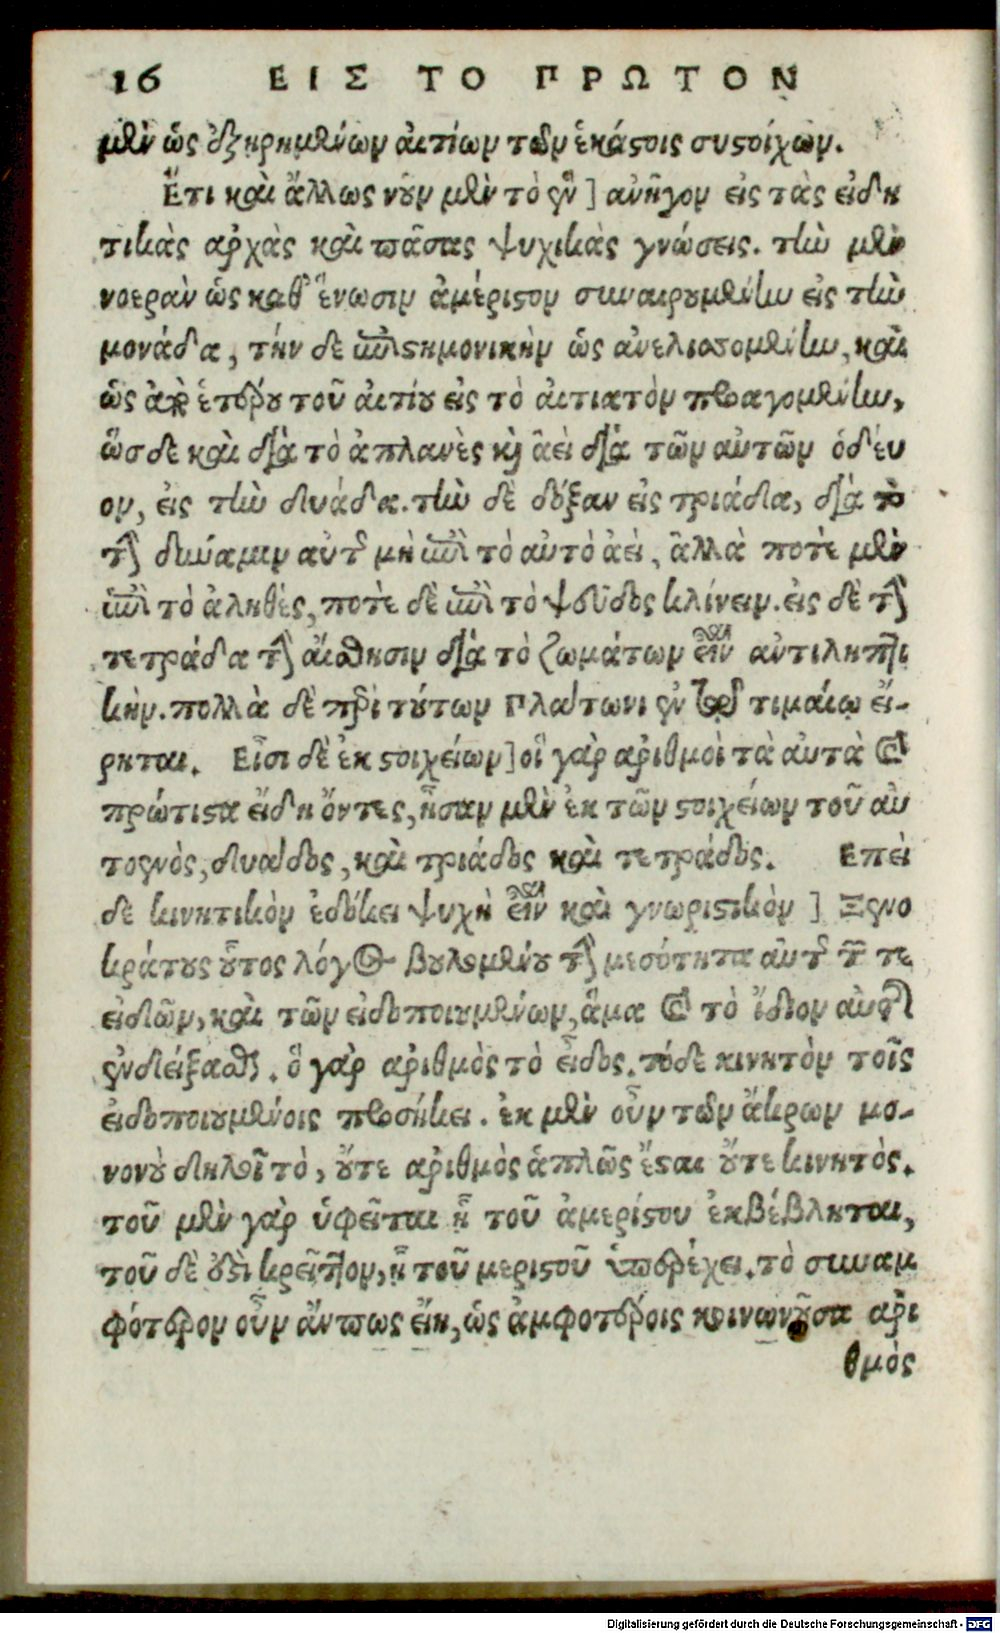 16 ΕΙΣ ΤΟ ΠΡΩΤΟΝ
μὲν ὡς ἐξῃρημένων αἰτίων τῶν ἑκάστοις συστοίχων.
Ἔτι καὶ ἄλλως νοῦν μὲν τὸ ἓν] ἀνῆγον εἰς τὰς εἰδη
τικὰς ἀρχὰς καὶ πάσας ψυχικὰς γνώσεις. τὴν μὲν
νοερὰν ὡς καθ' ἕνωσιν ἀμέριστον συναιρουμένην εἰς τὴν
μονάδα, τήν δε ἐπιστημονικὴν ὡς ἀνελισσομένην, καὶ
ὡς ἀφ' ἑτέρου τοῦ αἰτίου εἰς τὸ αἰτιατὸν προαγομένην,
ὥσδε καὶ διὰ τὸ ἀπλανὲς καὶ ἀεὶ διὰ τῶν αὐτῶν ὁδεύ
ον, εἰς τὴν δυάδα. τὴν δὲ δόξαν εἰς τριάδα, διὰ τὸ
τὴν δύναμιν αὐτῆς μὴ ἐπὶ τὸ αὐτὸ ἀεὶ, ἀλλὰ ποτὲ μὲν
ἐπὶ τὸ ἀληθὲς, ποτὲ δὲ ἐπὶ τὸ ψεῦδος κλίνειν. εἰς δὲ τὴν
τετράδα τὴν αἴσθησιν διὰ τὸ ζωμάτων εἶναι ἀντιληπτι
κὴν. πολλὰ δὲ περὶ τούτων Πλάτωνι ἐν τῷ τιμαίῳ εἴ-
ρηται. Εἰσὶ δὲ ἐκ στοιχείων] οἱ γὰρ ἀριθμοὶ τὰ αὐτὰ καὶ
πρώτιστα εἴδη ὄντες, ἦσαν μὲν ἐκ τῶν στοιχείων τοῦ αὐ
τοενὸς, δυάδος, καὶ τριάδος καὶ τετράδος. Επεὶ
δε κινητικὸν ἐδόκει ψυχὴ εἶναι καὶ γνωριστικὸν] Ξενο
κράτους οὗτος λόγος βουλομένου τὴν μεσότητα αὐτῆς τῶν τε
εἰδῶν, καὶ τῶν εἰδοποιουμένων, ἅμα καὶ τὸ ἴδιον αὐτῆς
ἐνδείξασθαι. ὁ γὰρ ἀριθμὸς τὸ εἶδος. τόδε κινητὸν τοῖς
εἰδοποιουμένοις προσήκει. ἐκ μὲν οὖν τῶν ἄκρων μο-
νονοὺ δηλοῖ τὸ, οὔτε ἀριθμὸς ἁπλῶς ἔσται οὔτε κινητὸς.
τοῦ μὲν γὰρ ὑφεῖται ἢ τοῦ ἀμερίστου ἐκβέβληται,
τοῦ δὲ ἐστὶ κρεῖττον, ἢ τοῦ μεριστοῦ ὑπερέχει. τὸ συναμ
φότερον οὖν ἄντως εἴη, ὡς ἀμφοτέροις κοινωνοῦσα ἀρι
θμὸς